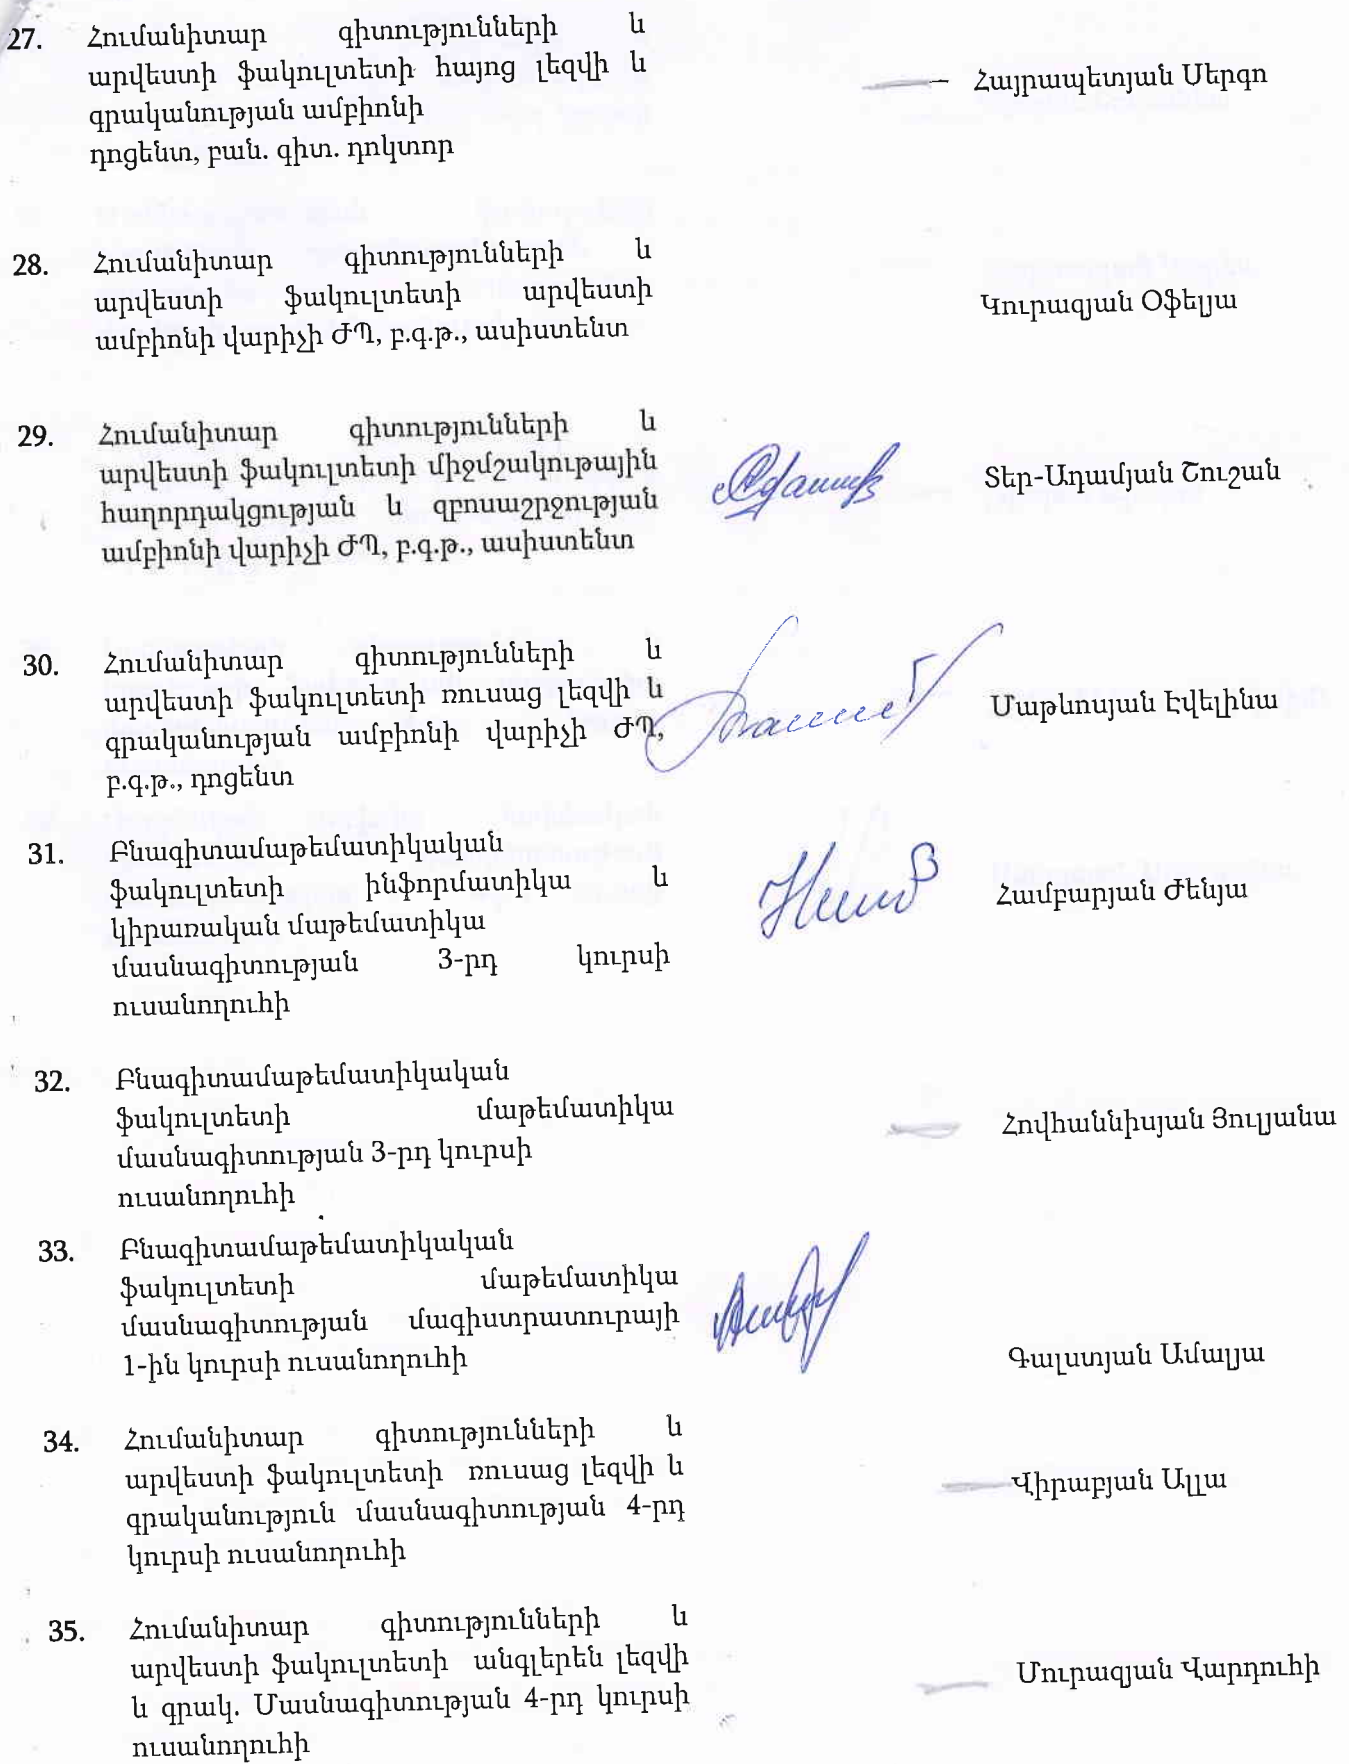 27. Հումանիտար գիտությունների և
արվեստի ֆակուլտետի հայոց լեզվի և
գրականության ամբիոնի
դոցենտ, բան. գիտ. դոկտոր
Հայրապետյան Սերգո
28. Հումանիտար գիտությունների և
արվեստի ֆակուլտետի արվեստի
ամբիոնի վարիչի ԺՊ, բ.գ.թ., ասիստենտ
Կուրազյան Օֆելյա
29. Հումանիտար գիտությունների և
արվեստի ֆակուլտետի միջմշակութային
հաղորդակցության և զբոսաշրջության
ամբիոնի վարիչի ԺՊ, բ.գ.թ., ասիստենտ
Տեր-Ադամյան Շուշան
30. Հումանիտար գիտությունների և
արվեստի ֆակուլտետի ռուսաց լեզվի և
գրականության ամբիոնի վարիչի ԺՊ,
բ.գ.թ., դոցենտ
Մաթևոսյան Էվելինա
31. Բնագիտամաթեմատիկական
ֆակուլտետի ինֆորմատիկա և
կիրառական մաթեմատիկա
մասնագիտության 3-րդ կուրսի
ուսանողուհի
Համբարյան Ժենյա
32. Բնագիտամաթեմատիկական
ֆակուլտետի մաթեմատիկա
մասնագիտության 3-րդ կուրսի
ուսանողուհի
Հովհաննիսյան Յուլյանա
33. Բնագիտամաթեմատիկական
ֆակուլտետի մաթեմատիկա
մասնագիտության մագիստրատուրայի
1-ին կուրսի ուսանողուհի
Գալստյան Ամալյա
34. Հումանիտար գիտությունների և
արվեստի ֆակուլտետի ռուսաց լեզվի և
գրականություն մասնագիտության 4-րդ
կուրսի ուսանողուհի
Վիրաբյան Ալլա
35. Հումանիտար գիտությունների և
արվեստի ֆակուլտետի անգլերեն լեզվի
և գրակ. Մասնագիտության 4-րդ կուրսի
ուսանողուհի
Մուրազյան Վարդուհի